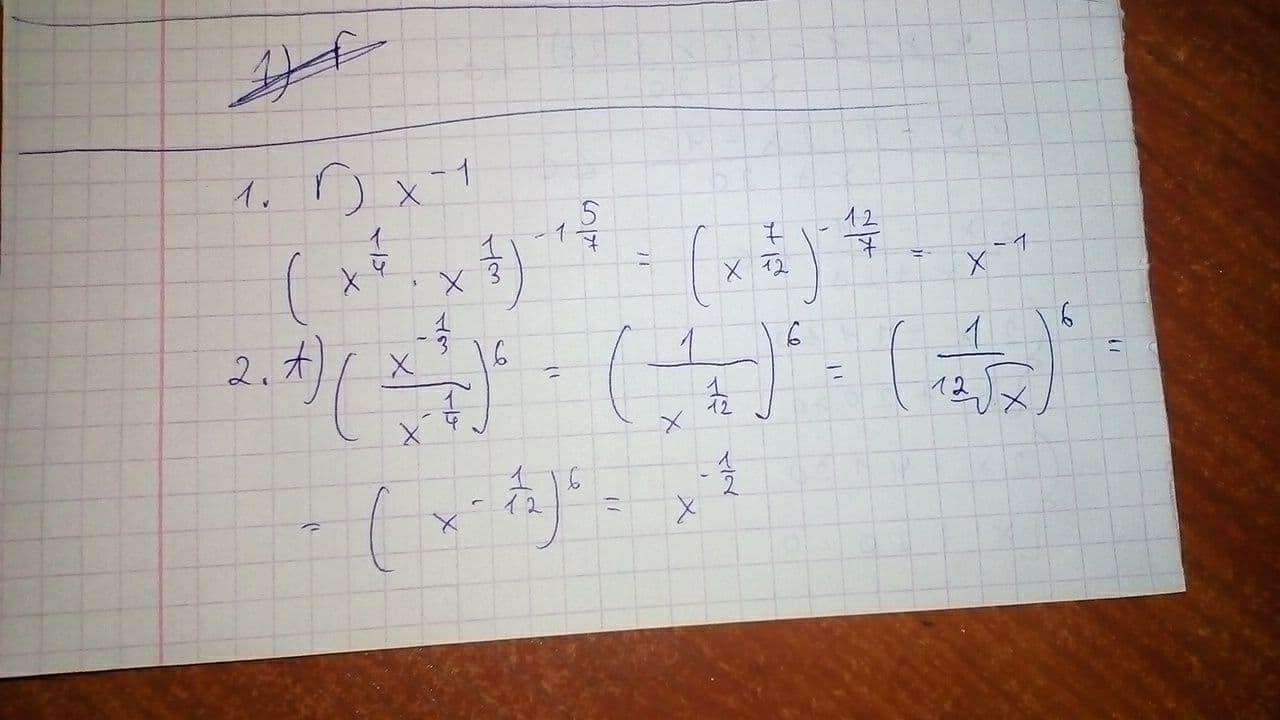 1) г
1. Г) x^{-1}
(x^{\frac{1}{4}} · x^{\frac{1}{3}})^{-1\frac{5}{7}} = (x^{\frac{7}{12}})^{-\frac{12}{7}} = x^{-1}
2. А) (\frac{x^{-\frac{1}{3}}}{x^{-\frac{1}{4}}})^6 = (\frac{1}{x^{\frac{1}{12}}})^6 = (\frac{1}{\sqrt[12]{x}})^6 =
= (x^{-\frac{1}{12}})^6 = x^{-\frac{1}{2}}